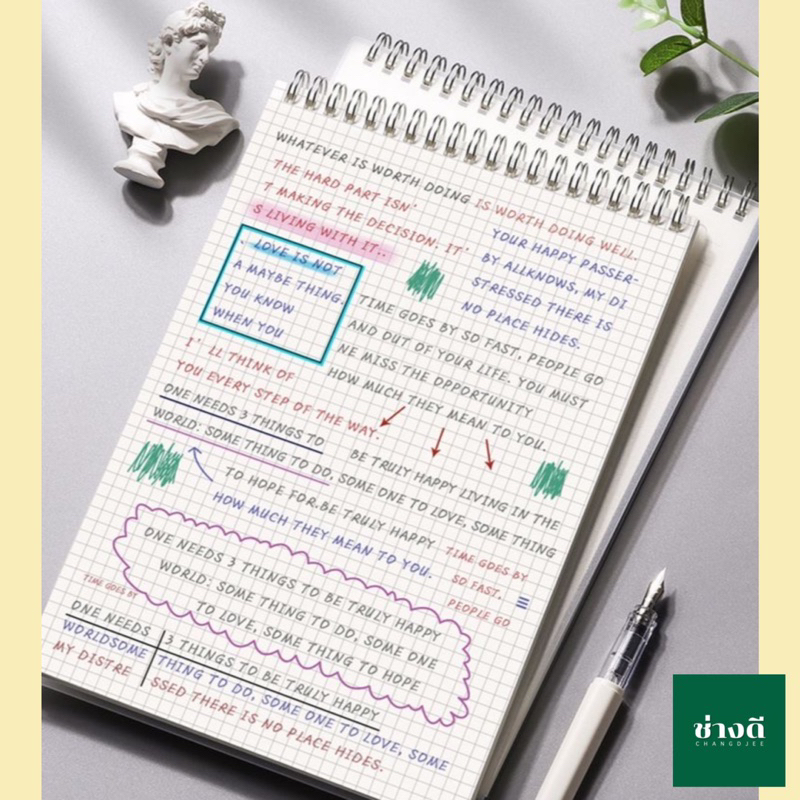 WHATEVER IS WORTH DOING IS WORTH DOING WELL.
THE HARD PART ISN'
T MAKING THE DECISION, IT'
S LIVING WITH IT..
YOUR HAPPY PASSER-
BY ALLKNOWS, MY DI
STRESSED THERE IS
NO PLACE HIDES.
. LOVE IS NOT
A MAYBE THING.
YOU KNOW
WHEN YOU
TIME GOES BY SO FAST, PEOPLE GO
AND OUT OF YOUR LIFE. YOU MUST
NE MISS THE OPPORTUNITY
HOW MUCH THEY MEAN TO YOU.
I' LL THINK OF
YOU EVERY STEP OF THE WAY.
ONE NEEDS 3 THINGS TO
BE TRULY HAPPY LIVING IN THE
WORLD: SOME THING TO DO, SOME ONE TO LOVE, SOME THING
TO HOPE FOR.BE TRULY HAPPY
HOW MUCH THEY MEAN TO YOU.
TIME GOES BY
SO FAST,
PEOPLE GO
ONE NEEDS 3 THINGS TO BE TRULY HAPPY
WORLD: SOME THING TO DO, SOME ONE
TO LOVE, SOME THING TO HOPE
TIME GOES BY
ONE NEEDS 3 THINGS TO BE TRULY HAPPY
WORLDSOME THING TO DO, SOME ONE TO LOVE, SOME
MY DISTRE SSED THERE IS NO PLACE HIDES.
ช่างดี
CHANGDJEE